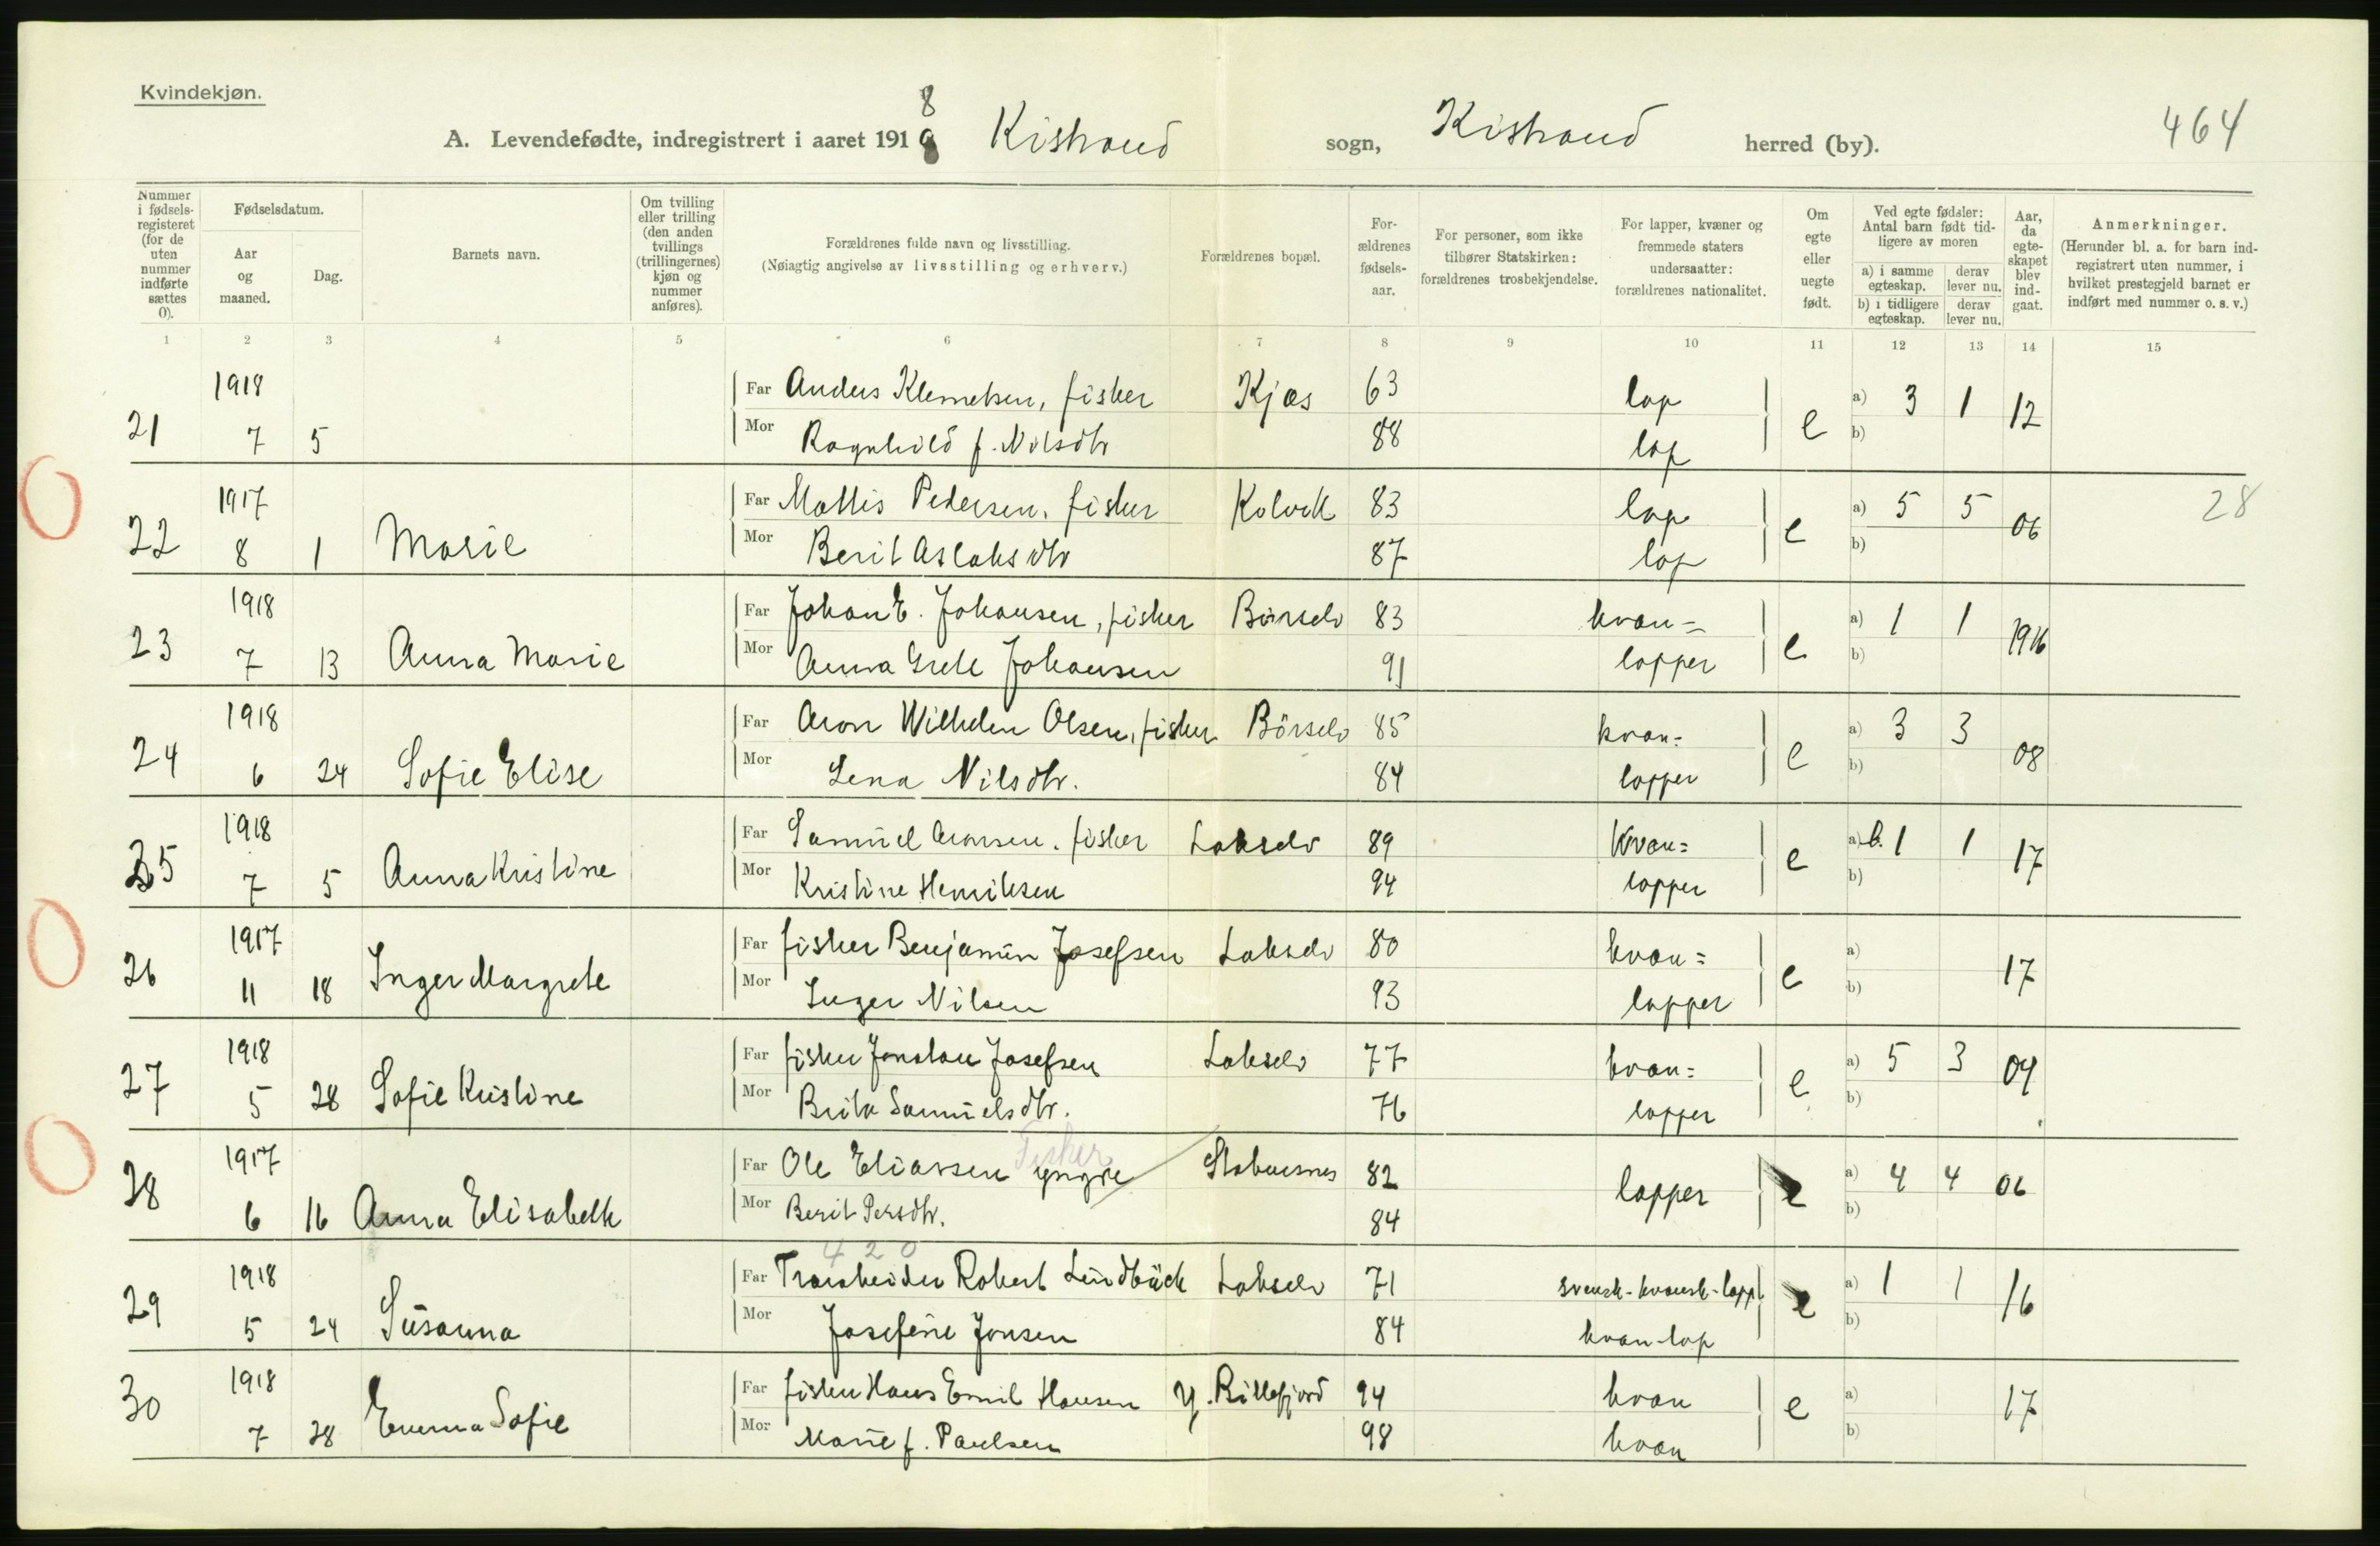 Kvindekjøn.
A. Levendefødte, indregistrert i aaret 1918 Kistrand sogn, Kistrand herred (by). 464
Nummer i fødsels-registeret (for de uten nummer indførte sættes 0).
Fødselsdatum.
Aar og maaned.
Dag.
Barnets navn.
Om tvilling eller trilling (den anden tvillings (trillingernes) kjøn og nummer anføres).
Forældrenes fulde navn og livsstilling.
(Nøiagtig angivelse av livsstilling og erhverv.)
Forældrenes bopæl.
For-ældrenes fødsels-aar.
For personer, som ikke tilhører Statskirken: forældrenes trosbekjendelse.
For lapper, kvæner og fremmede staters undersaatter: forældrenes nationalitet.
Om egte eller uegte født.
Ved egte fødsler: Antal barn født tid-ligere av moren
a) i samme egteskap.
derav lever nu.
b) i tidligere egteskap.
derav lever nu.
Aar, da egte-skapet blev ind-gaat.
Anmerkninger.
(Herunder bl. a. for barn ind-registrert uten nummer, i hvilket prestegjeld barnet er indført med nummer o. s. v.)
1 2 3 4 5 6 7 8 9 10 11 12 13 14 15
1918 Far Anders Klemetsen, fisker Kjæs 63 lap a) 3 1 12
21 7 5 Mor Ragnhild f. Nilsdtr 88 lap e b)
1917 Far Mattis Pedersen, fisker Kolvik 83 lap a) 5 5 06 28
22 8 1 Marie Mor Berit Aslaksdtr 87 lap e b)
1918 Far Johan E. Johansen, fisker Børselv 83 kvæn- a) 1 1 1916
23 7 13 Anna Marie Mor Anna Grete Johansen 91 lapper e b)
1918 Far Aron Wilhelm Olsen, fisker Börselv 85 kvæn- a) 3 3 08
24 6 24 Sofie Elise Mor Lena Nilsdtr. 84 lapper e b)
1918 Far Samuel Aronsen, fisker Lakselv 89 Kvæn= a) 1 1 17
25 7 5 Anna Kristine Mor Kristine Henriksen 94 lapper e b)
1917 Far fisker Benjamin Josefsen Lakselv 80 kvæn= a) 17
26 11 18 Inger Margrete Mor Inger Nilsen 93 lapper e b)
1918 Far fisker Jonatan Josefsen Lakselv 77 kvæn= a) 5 3 09
27 5 28 Sofie Kristine Mor Brita Samuelsdtr. 76 lapper e b)
Fisker
1917 Far Ole Eliassen yngre Stabursnes 82 lapper a) 4 4 06
28 6 16 Anna Elisabeth Mor Berit Persdtr. 84 e b)
420
1918 Far Træarbeider Robert Lindbäck Lakselv 71 svensk-kvænsk-lapp a) 1 1 16
29 5 24 Susanna Mor Josefine Jonsen 84 kvæn-lap e b)
1918 Far fisker Hans Emil Hansen Y. Billefjord 94 kvæn a) 17
30 7 28 Emma Sofie Mor Marie f. Paulsen 98 kvæn e b)